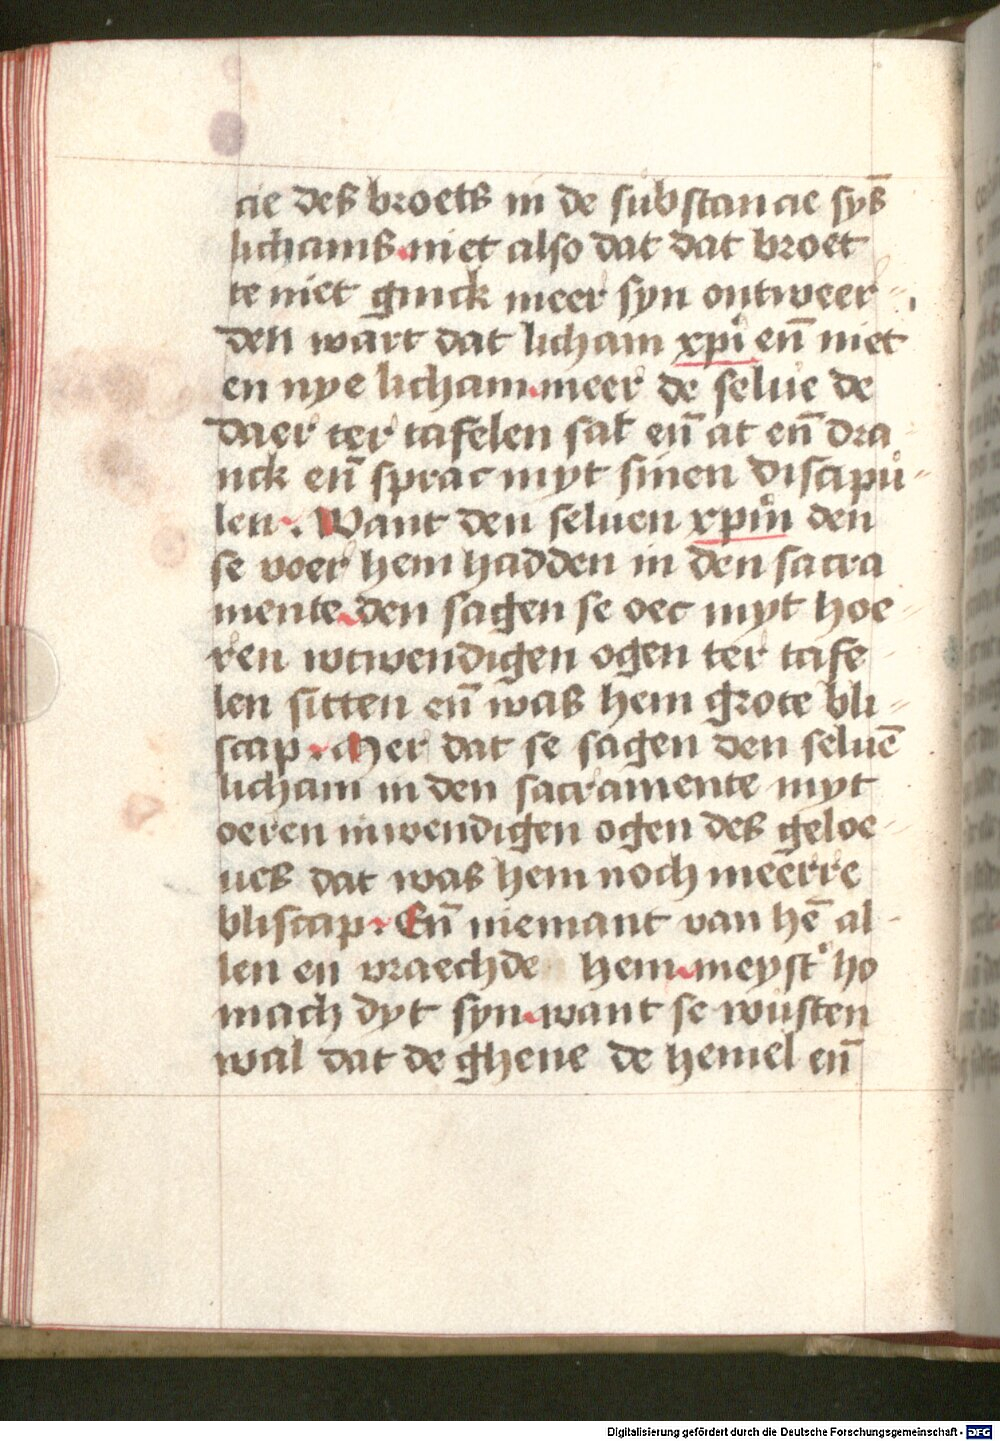 cie des broets in de substancie sys̄
lichams. niet also dat dat broet
te niet ginck meer syn ontweer-
den wart dat licham xpi en̄ niet
en nye licham. meer de selue de
daer ter tafelen sat en̄ at en̄ dra-
nck en̄ sprac myt sinen discipu-
len. Want den seluen xpm̄ den
se voer hem hadden in den sacra
mente. den sagen se oec myt hoe-
ren wtwendigen ogen ter tafe-
len sitten en̄ was hem grote bli-
scap. Mer dat se sagen den seluē
licham in den sacramente myt
oeren inwendigen ogen des geloe-
ues dat was hem noch meerre
bliscap. En̄ niemant van hē al-
len en vraechde hem. meyst' ho
mach dyt syn. want se wusten
wal dat de ghene de hemel en̄
Digitalisierung gefördert durch die Deutsche Forschungsgemeinschaft - DFG